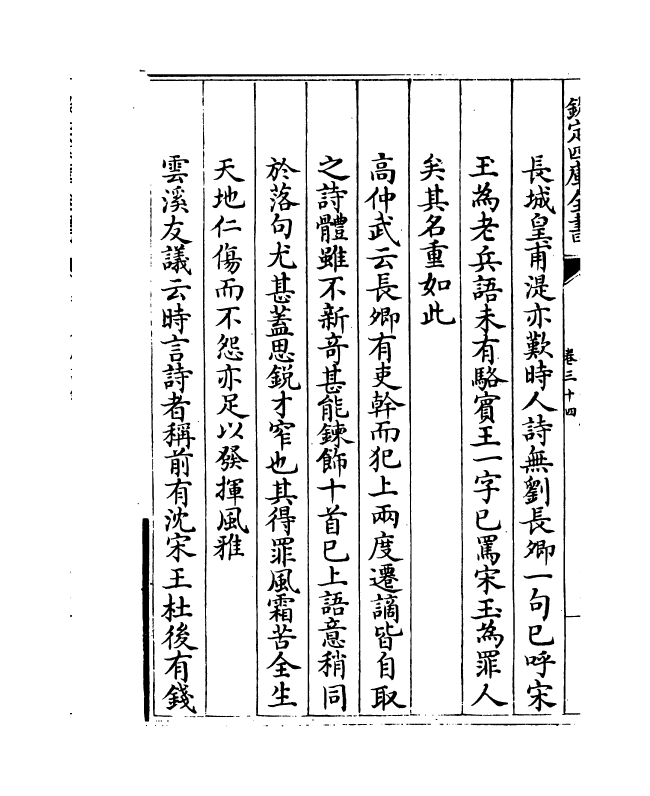 欽定四庫全書
卷三十四
長城皇甫湜亦歎時人詩無劉長卿一句已呼宋
玉為老兵語未有駱賓王一字已罵宋玉為罪人
矣其名重如此
高仲武云長卿有吏幹而犯上兩度遷謫皆自取
之詩體雖不新奇甚能鍊飾十首已上語意稍同
於落句尤甚蓋思鋭才窄也其得罪風霜苦全生
天地仁傷而不怨亦足以發揮風雅
雲溪友議云時言詩者稱前有沈宋王杜後有錢